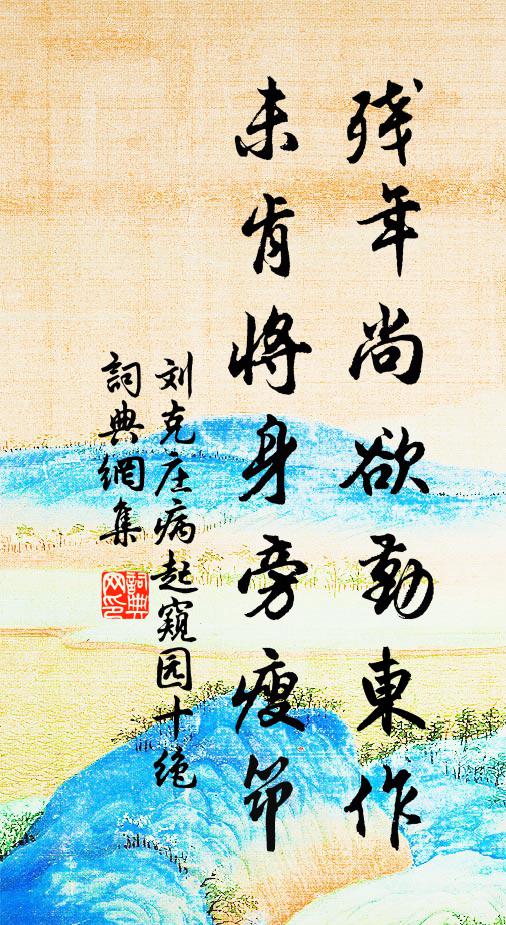 残年尚欲勤東作
未肯将身旁瘦笻
刘克庄病起窺园十绝
詞典網集
詞典网印